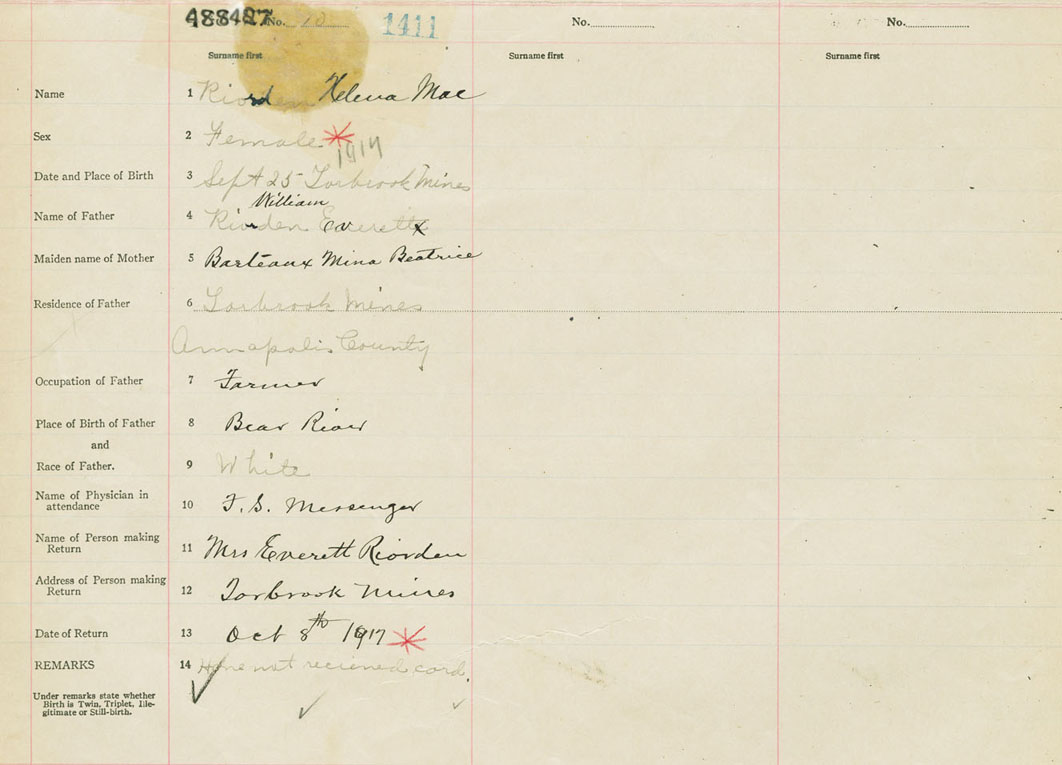 488427 No. 70 1411 No. No.
Surname first Surname first Surname first
Name 1 Riorden Helena Mae
Sex 2 Female
1917
Date and Place of Birth 3 Sept 25 Torbrook Mines
William
Name of Father 4 Riorden Everett x
Maiden name of Mother 5 Barteaux Mina Beatrice
Residence of Father 6 Torbrook Mines
Annapolis County
Occupation of Father 7 Farmer
Place of Birth of Father 8 Bear River
and
Race of Father. 9 White
Name of Physician in attendance 10 F. S. Messenger
Name of Person making Return 11 Mrs Everett Riorden
Address of Person making Return 12 Torbrook Mines
Date of Return 13 Oct 8th 1917
REMARKS 14 Have not recieved card.
Under remarks state whether
Birth is Twin, Triplet, Ille-
gitimate or Still-birth.